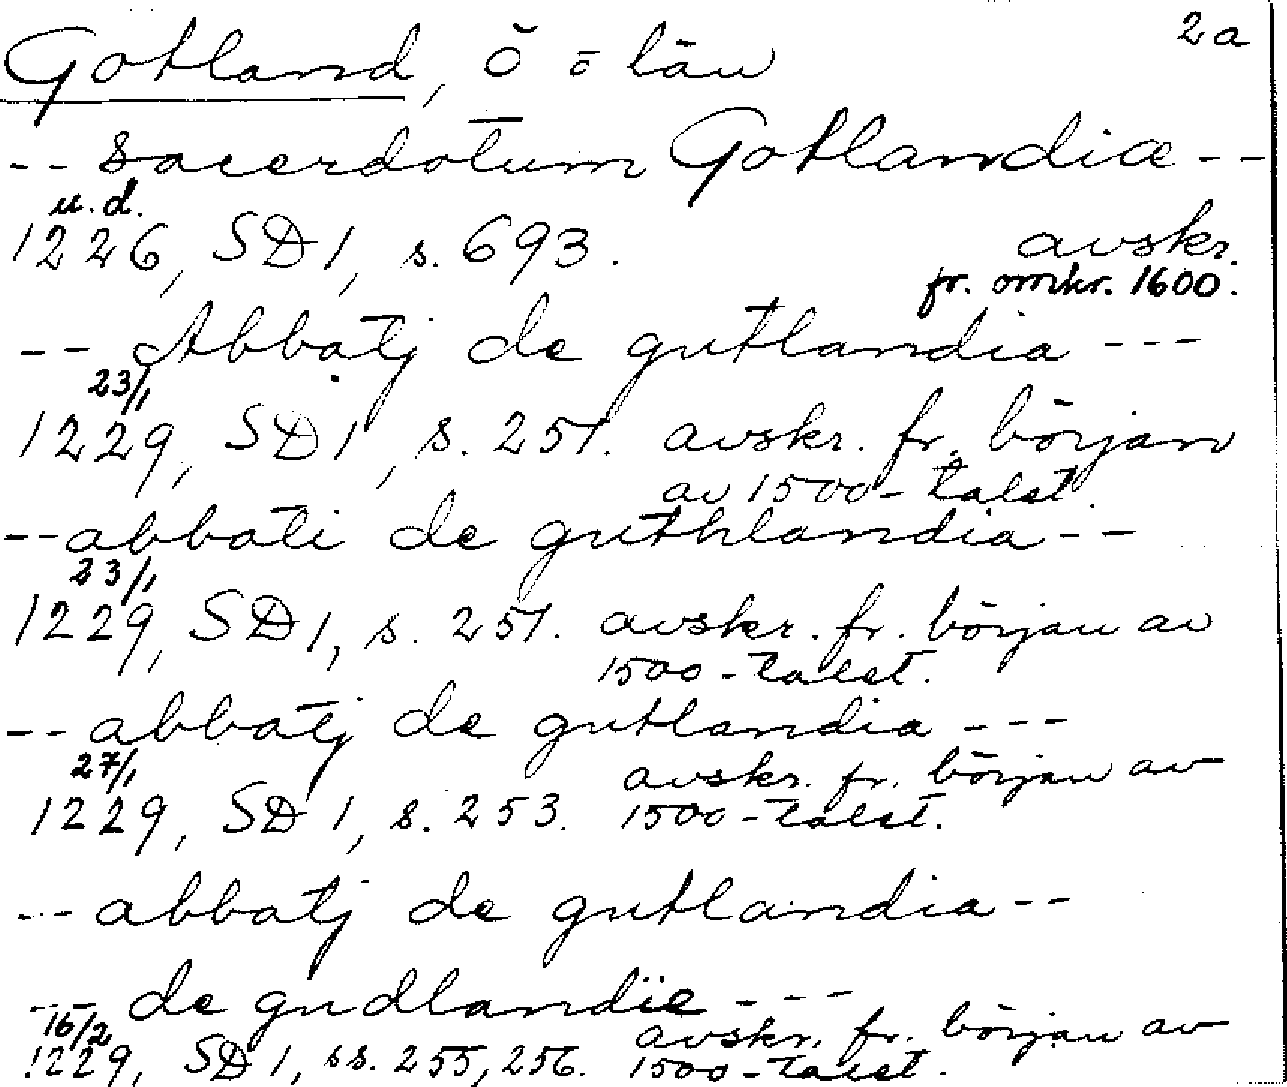 2a
Gotland, ö = län
-- sacerdotum Gotlandiæ --
u.d.
1226, SD 1, s. 693. avskr.
fr. omkr. 1600.
-- Abbatj de gutlandia ---
23/1
1229, SD 1, s. 251. avskr. fr. början
av 1500-talet.
-- abbati de guthlandia --
23/1
1229, SD 1, s. 251. avskr. fr. början av
1500-talet.
-- abbatj de gutlandia ---
27/1 avskr. fr. början av
1229, SD 1, s. 253. 1500-talet.
--- abbatj de gutlandia --
--- de gudlandie ---
16/2 avskr. fr. början av
1229, SD 1, ss. 255, 256. 1500-talet.